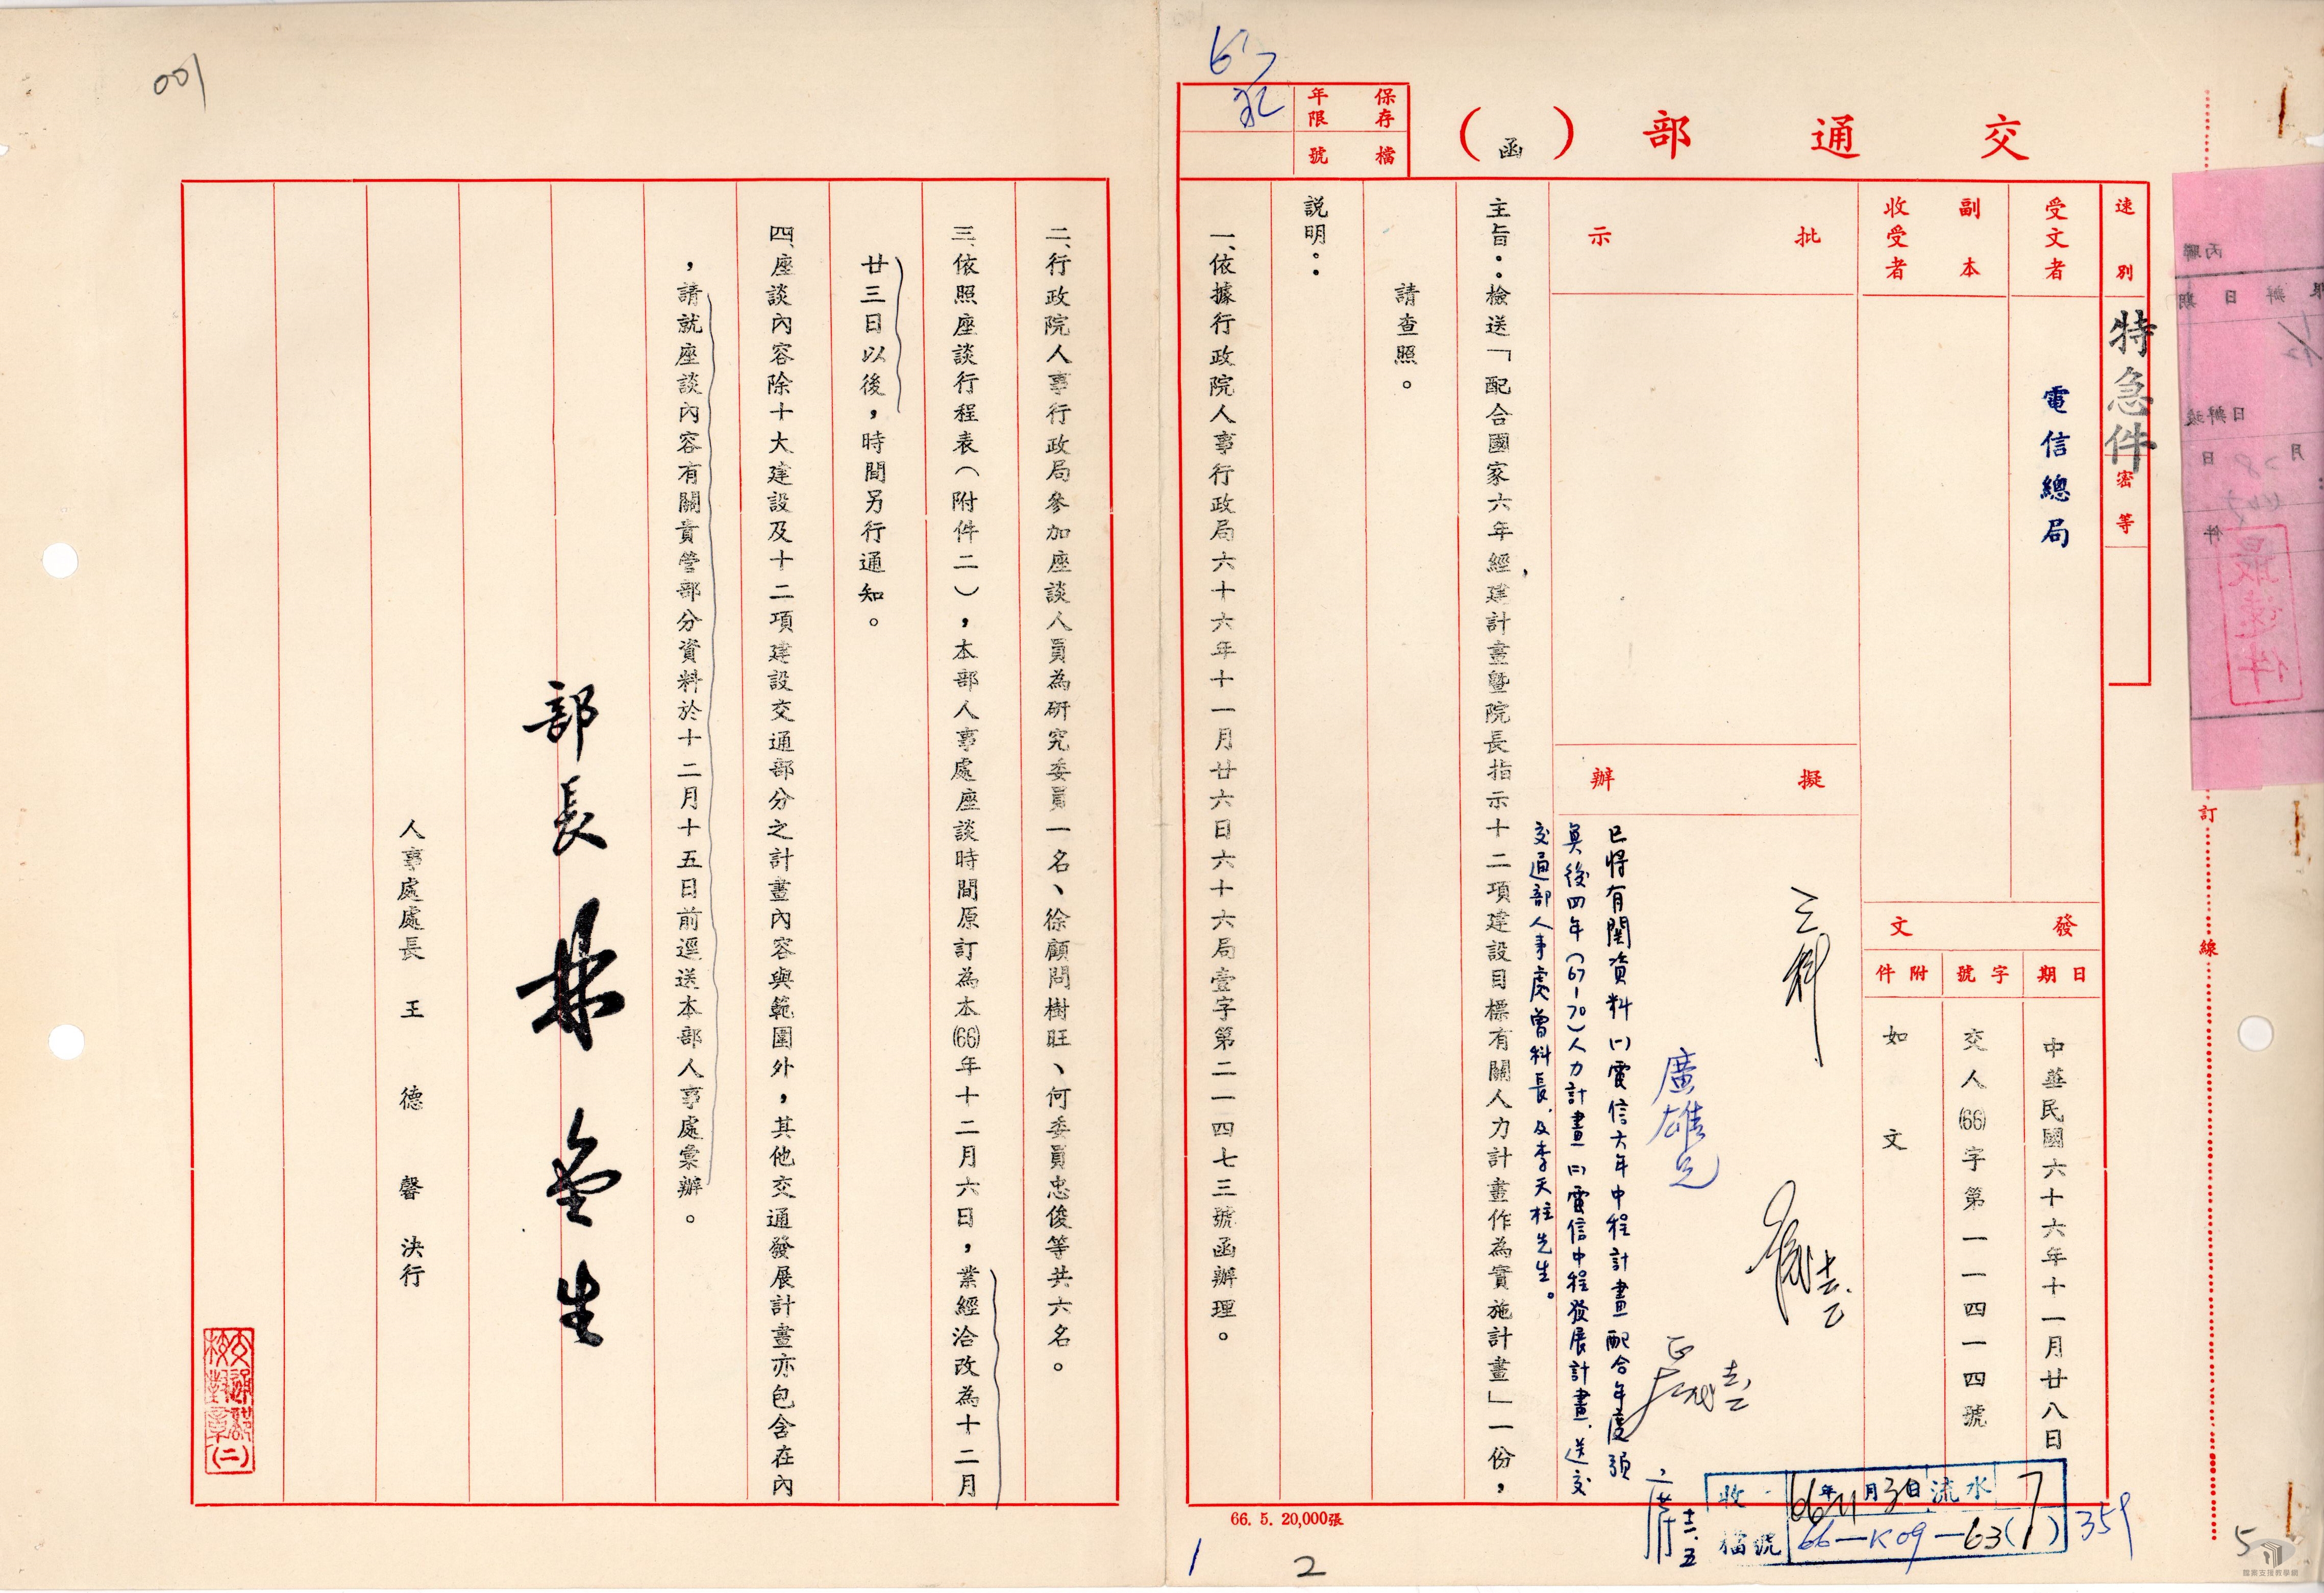 交通部（函）
保存年限
檔號
速別
特急件
密等
受文者
電信總局
副本收受者
發文
日期
中華民國六十六年十一月廿八日
字號
交人(66)字第一一四一一四號
附件
如文
批示
擬辦
已將有關資料㈠電信六年中程計畫配合年度預
算後四年(67-70)人力計畫㈡電信中程發展計畫,送交
交通部人事處曾科長,及李天柱先生。
廣雄兄
主旨：檢送「配合國家六年經建計畫暨院長指示十二項建設目標有關人力計畫作為實施計畫」一份，
請查照。
說明：
一、依據行政院人事行政局六十六年十一月廿六日六十六局壹字第二一四七三號函辦理。
二、行政院人事行政局參加座談人員為研究委員一名、徐顧問樹旺、何委員忠俊等共六名。
三、依照座談行程表（附件二），本部人事處座談時間原訂為本(66)年十二月六日，業經洽改為十二月
廿三日以後，時間另行通知。
四、座談內容除十大建設及十二項建設交通部分之計畫內容與範圍外，其他交通發展計畫亦包含在內
，請就座談內容有關貴管部分資料於十二月十五日前逕送本部人事處彙辦。
部長 林金生
人事處處長 王德馨 決行
交通部校對章(二)
訂
線
66. 5. 20,000張
收
66年
月3日
流水
7
檔號
66-K09-63(7)
359
001
1
2
5
最速件
丙聯
檔案支援教學網